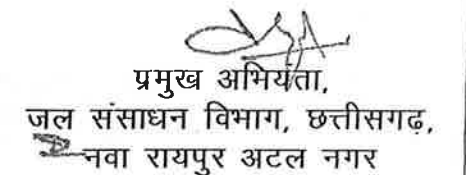 प्रमुख अभियंता,
जल संसाधन विभाग, छत्तीसगढ़,
नवा रायपुर अटल नगर